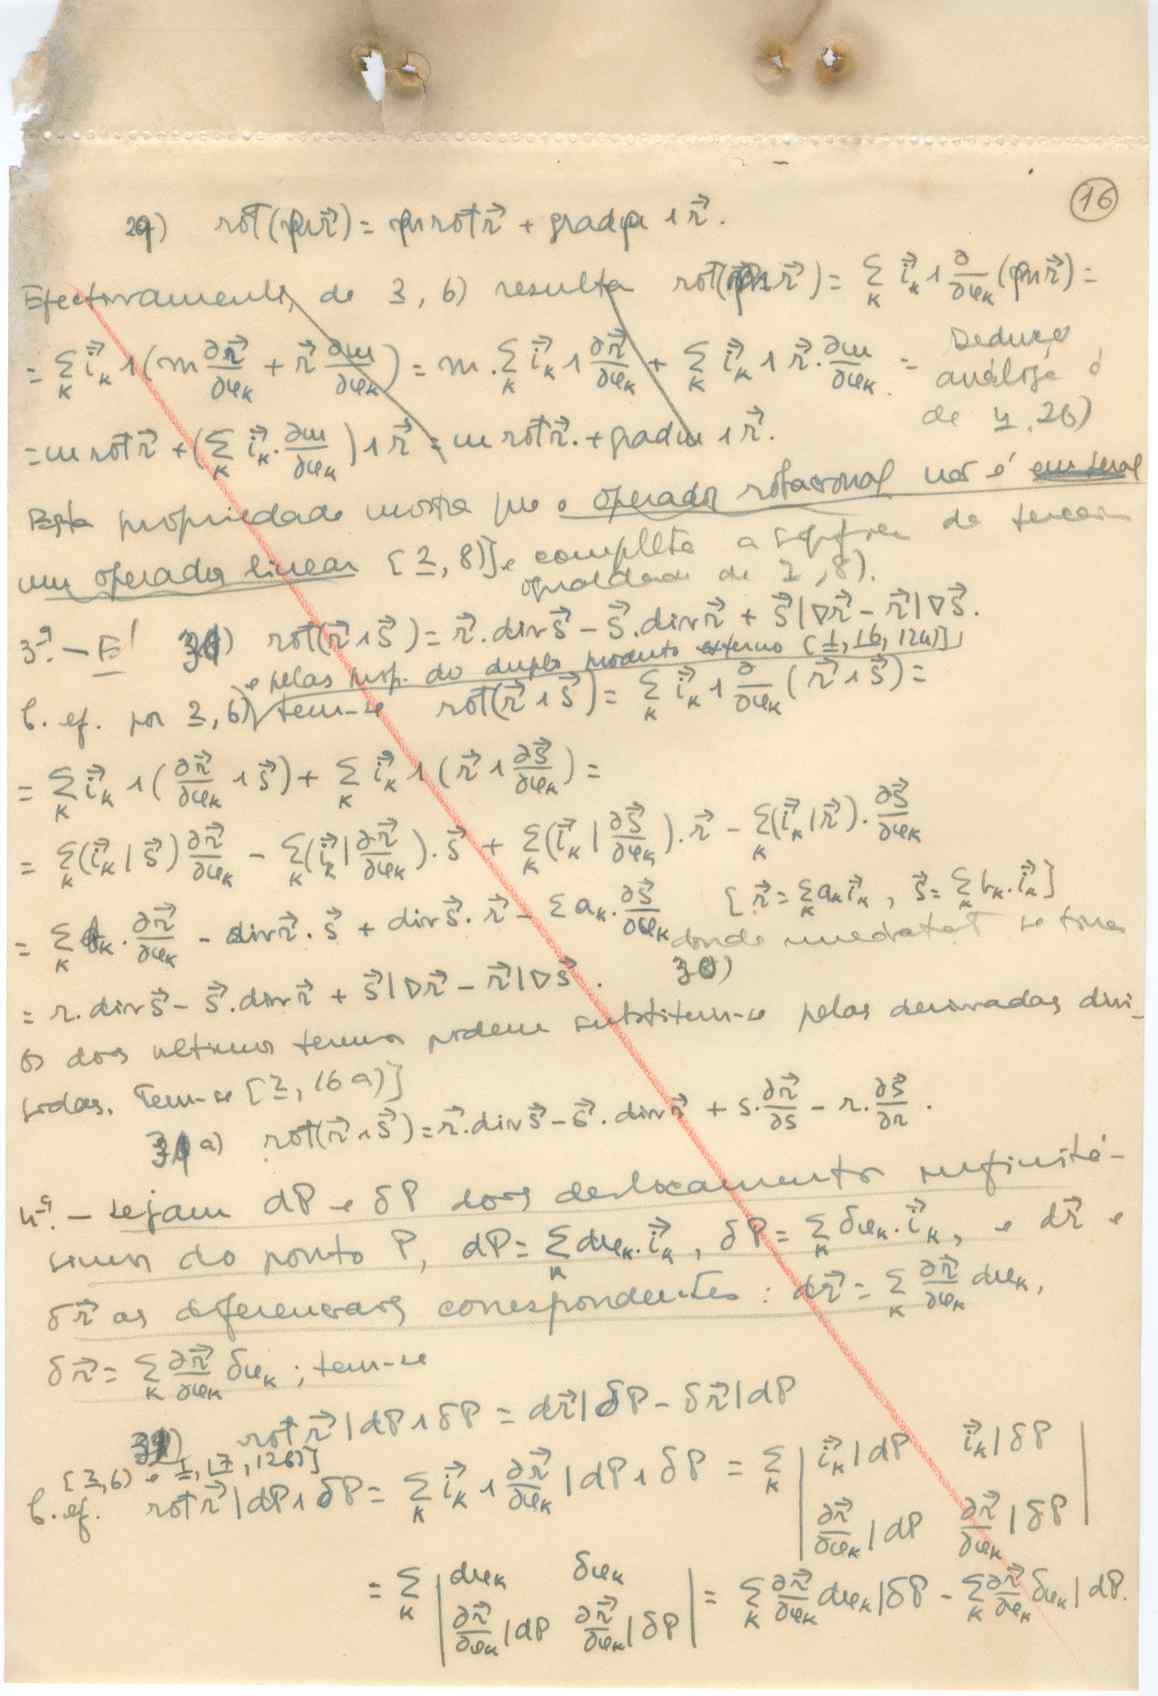 16
29) rot(m r⃗) = m rot r⃗ + grad m ∧ r⃗.
Efectivamente, de 3, 6) resulta rot(m r⃗) = Σ_K i⃗_K ∧ ∂/∂x_K (m r⃗) =
= Σ_K i⃗_K ∧ (m ∂r⃗/∂x_K + r⃗ ∂m/∂x_K) = m . Σ_K i⃗_K ∧ ∂r⃗/∂x_K + Σ_K i⃗_K ∧ r⃗ . ∂m/∂x_K =
Dedução
análoga à
de 4, 26)
= m rot r⃗ + (Σ_K i⃗_K . ∂m/∂x_K) ∧ r⃗ = m rot r⃗. + grad m ∧ r⃗.
Esta propriedade mostra que o operador rotacional não é em geral
um operador linear [2, 8)] e completa a de terceira
igualdade de 2, 8).
3ª. — É 30) rot(r⃗ ∧ s⃗) = r⃗ . div s⃗ − s⃗ . div r⃗ + s⃗ | ∇r⃗ − r⃗ | ∇s⃗.
e pelas prop. do duplo produto externo [1, 16, 124)]
C. ef. por 3, 6) tem-se rot(r⃗ ∧ s⃗) = Σ_K i⃗_K ∧ ∂/∂x_K (r⃗ ∧ s⃗) =
= Σ_K i⃗_K ∧ (∂r⃗/∂x_K ∧ s⃗) + Σ_K i⃗_K ∧ (r⃗ ∧ ∂s⃗/∂x_K) =
= Σ_K (i⃗_K | s⃗) ∂r⃗/∂x_K − Σ_K (i⃗_K | ∂r⃗/∂x_K) . s⃗ + Σ_K (i⃗_K | ∂s⃗/∂x_K) . r⃗ − Σ_K (i⃗_K | r⃗) . ∂s⃗/∂x_K
= Σ_K b_K . ∂r⃗/∂x_K − div r⃗ . s⃗ + div s⃗ . r⃗ − Σ a_K . ∂s⃗/∂x_K [r⃗ = Σ_K a_K i⃗_K , s⃗ = Σ_K b_K . i⃗_K]
donde imediatat se tira
30)
= r . div s⃗ − s⃗ . div r⃗ + s⃗ | ∇r⃗ − r⃗ | ∇s⃗ .
Os dois ultimos termos podem substituir-se pelas derivadas diri-
gidas. Tem-se [2, 16 a)]
31 a) rot(r⃗ ∧ s⃗) = r⃗ . div s⃗ − s⃗ . div r⃗ + s . ∂r⃗/∂s − r . ∂s⃗/∂r .
4ª. — Sejam dP e δP dois deslocamentos infinité-
simos do ponto P, dP = Σ_K dx_K . i⃗_K , δP = Σ_K δx_K . i⃗_K , e dr⃗ e
δr⃗ as diferenciais correspondentes : dr⃗ = Σ_K ∂r⃗/∂x_K dx_K ,
δr⃗ = Σ_K ∂r⃗/∂x_K δx_K ; tem-se
31) rot r⃗ | dP ∧ δP = dr⃗ | δP − δr⃗ | dP
[3, 6) e 1, 17, 126)]
C. ef. rot r⃗ | dP ∧ δP = Σ_K i⃗_K ∧ ∂r⃗/∂x_K | dP ∧ δP = Σ_K | i⃗_K | dP i⃗_K | δP |
| ∂r⃗/∂x_K | dP ∂r⃗/∂x_K | δP |
= Σ_K | dx_K δx_K |
| ∂r⃗/∂x_K | dP ∂r⃗/∂x_K | δP | = Σ_K ∂r⃗/∂x_K dx_K | δP − Σ_K ∂r⃗/∂x_K δx_K | dP.